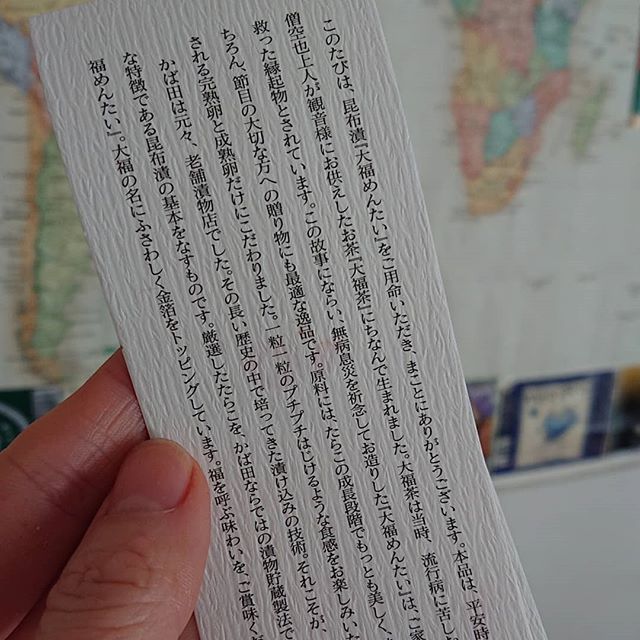 このたびは、昆布漬『大福めんたい』をご用命いただき、まことにありがとうございます。本品は、平安時
僧空也上人が観音様にお供えしたお茶『大福茶』にちなんで生まれました。大福茶は当時、流行病に苦し
救った縁起物とされています。この故事にならい、無病息災を祈念してお造りした『大福めんたい』は、ご家
ちろん、節目の大切な方への贈り物にも最適な逸品です。原料には、たらこの成長段階でもっとも美しく、
される完熟卵と成熟卵だけにこだわりました。一粒一粒のプチプチはじけるような食感をお楽しみいた
かば田は元々、老舗漬物店でした。その長い歴史の中で培ってきた漬け込みの技術。それこそが、
な特徴である昆布漬の基本をなすものです。厳選したたらこを、かば田ならではの漬物貯蔵製法で
福めんたい』。大福の名にふさわしく金箔をトッピングしています。福を呼ぶ味わいを、ご賞味く